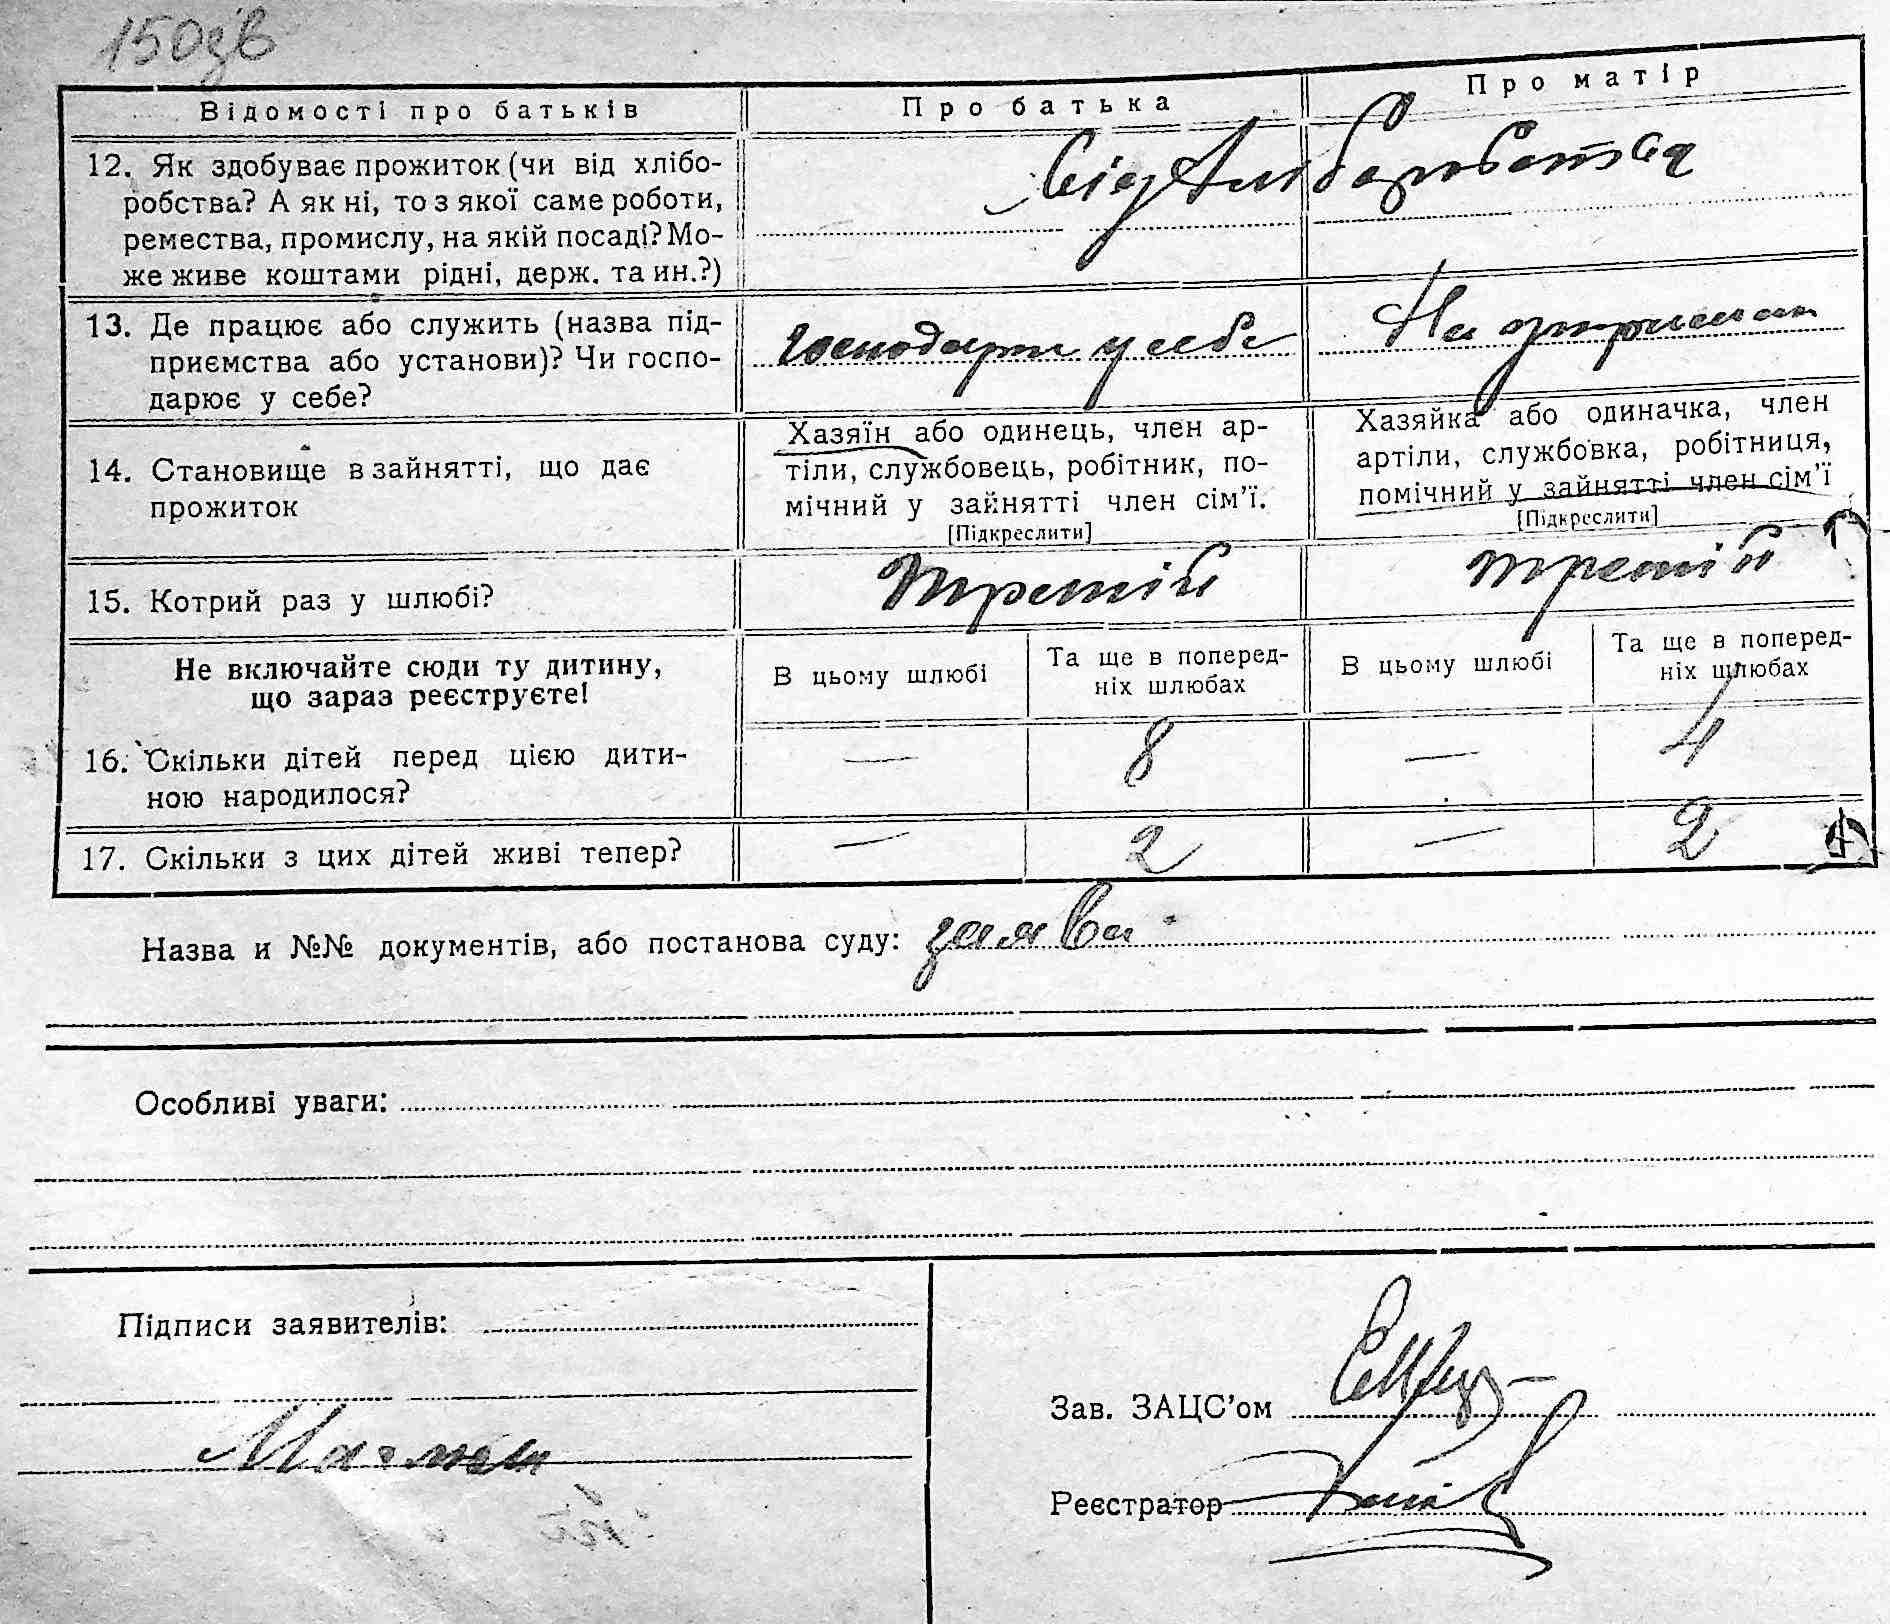 150зв
Відомості про батьків
Про батька
Про матір
12. Як здобуває прожиток (чи від хлібо-
робства? А як ні, то з якої саме роботи,
ремества, промислу, на якій посаді? Мо-
же живе коштами рідні, держ. та ин.?)
Від хліборобства
13. Де працює або служить (назва під-
приємства або установи)? Чи госпо-
дарює у себе?
господарює у себе
На
14. Становище в зайнятті, що дає
прожиток
Хазяїн або одинець, член ар-
тіли, службовець, робітник, по-
мічний у зайнятті член сім'ї.
[Підкреслити]
Хазяйка або одиначка, член
артіли, службовка, робітниця,
помічний у зайнятті член сім'ї
[Підкреслити]
15. Котрий раз у шлюбі?
Третій
третій
Не включайте сюди ту дитину,
що зараз реєструєте!
В цьому шлюбі
Та ще в поперед-
ніх шлюбах
В цьому шлюбі
Та ще в поперед-
ніх шлюбах
16. Скільки дітей перед цією дити-
ною народилося?
— 8 — 4
17. Скільки з цих дітей живі тепер?
— 2 — 2
Назва и №№ документів, або постанова суду: заява
Особливі уваги:
Підписи заявителів:
Зав. ЗАЦС'ом
Реєстратор